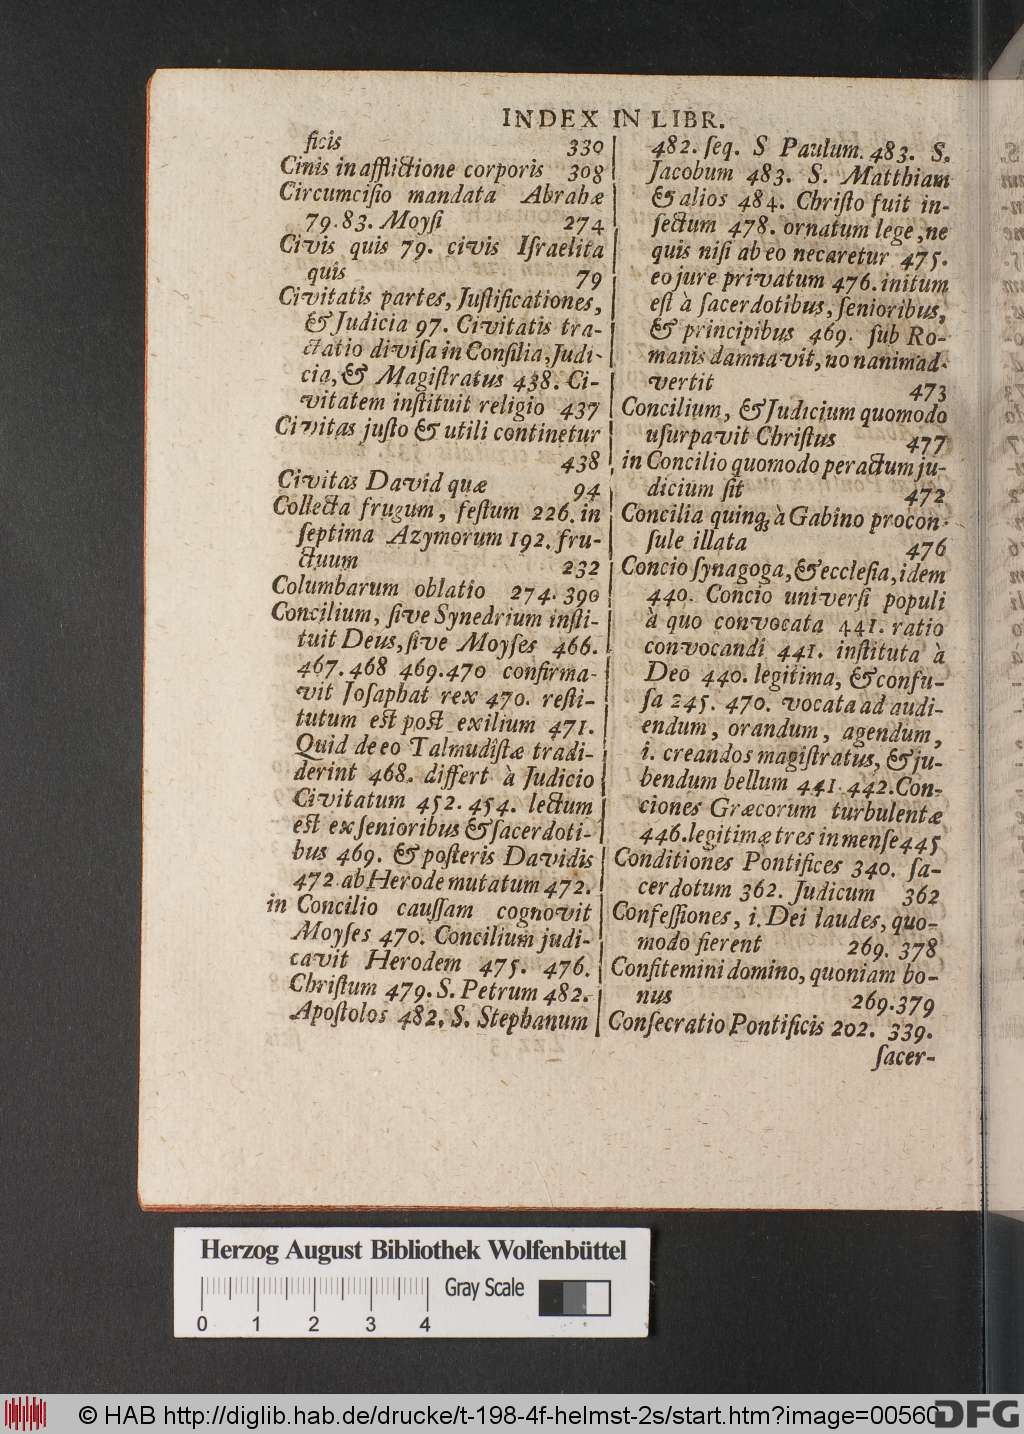 INDEX IN LIBR.
ficis 330
Cinis in afflictione corporis 308
Circumcisio mandata Abrahæ
79. 83. Moysi 274
Civis quis 79. civis Israelita
quis 79
Civitatis partes, Justificationes,
& Judicia 97. Civitatis tra-
ctatio divisa in Consilia, Judi-
cia, & Magistratus 438. Ci-
vitatem instituit religio 437
Civitas justo & utili continetur
438
Civitas David quæ 94
Collecta frugum, festum 226. in
septima Azymorum 192. fru-
ctuum 232
Columbarum oblatio 274. 390
Concilium, sive Synedrium insti-
tuit Deus, sive Moyses 466.
467. 468 469. 470 confirma-
vit Josaphat rex 470. resti-
tutum est post exilium 471.
Quid de eo Talmudistæ tradi-
derint 468. differt à Judicio
Civitatum 452. 454. lectum
est ex senioribus & sacerdoti-
bus 469. & posteris Davidis
472. ab Herode mutatum 472.
in Concilio caussam cognovit
Moyses 470. Concilium judi-
cavit Herodem 475. 476.
Christum 479. S. Petrum 482.
Apostolos 482. S. Stephanum
482. seq. S Paulum. 483. S.
Jacobum 483. S. Matthiam
& alios 484. Christo fuit in-
sectum 478. ornatum lege, ne
quis nisi ab eo necaretur 475.
eo jure privatum 476. initum
est à sacerdotibus, senioribus,
& principibus 469. sub Ro-
manis damnavit, no nanimad-
vertit 473
Concilium, & Judicium quomodo
usurpavit Christus 477
in Concilio quomodo peractum ju-
dicium sit 472
Concilia quinqȝ à Gabino procon-
sule illata 476
Concio synagoga, & ecclesia, idem
440. Concio universi populi
à quo convocata 441. ratio
convocandi 441. instituta à
Deo 440. legitima, & confu-
sa 245. 470. vocata ad audi-
endum, orandum, agendum,
i. creandos magistratus, & ju-
bendum bellum 441. 442. Con-
ciones Græcorum turbulentæ
446. legitimæ tres in mense 445
Conditiones Pontifices 340. sa-
cerdotum 362. Judicum 362
Confessiones, i. Dei laudes, quo-
modo fierent 269. 378
Confitemini domino, quoniam bo-
nus 269. 379
Consecratio Pontificis 202. 339.
sacer-
Herzog August Bibliothek Wolfenbüttel
Gray Scale
0 1 2 3 4
© HAB http://diglib.hab.de/drucke/t-198-4f-helmst-2s/start.htm?image=00560
DFG